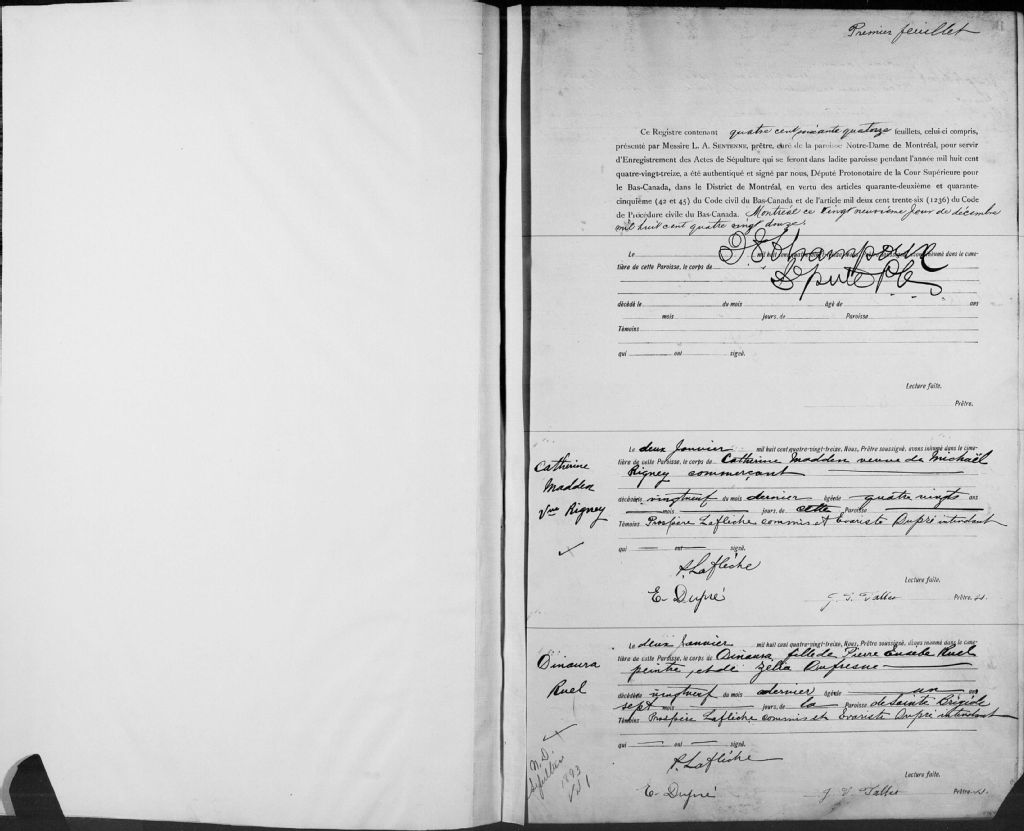 Premier feuillet
Ce Registre contenant quatre cent soixante quatorze feuillets, celui-ci compris,
présenté par Messire L. A. SENTENNE, prêtre, curé de la paroisse Notre-Dame de Montréal, pour servir
d'Enregistrement des Actes de Sépulture qui se feront dans ladite paroisse pendant l'année mil huit cent
quatre-vingt-treize, a été authentiqué et signé par nous, Député Protonotaire de la Cour Supérieure pour
le Bas-Canada, dans le District de Montréal, en vertu des articles quarante-deuxième et quarante-
cinquième (42 et 45) du Code civil du Bas-Canada et de l'article mil deux cent trente-six (1236) du Code
de Procédure civile du Bas-Canada. Montréal ce vingt neuvième jour de décembre
mil huit cent quatre vingt douze.
Le mil huit cent quatre-vingt-treize, Nous, Prêtre soussigné, avons inhumé dans le cime-
tière de cette Paroisse, le corps de
Député
décédé le du mois âgé de ans
mois jours, de Paroisse
Témoins
qui ont signé.
Lecture faite.
Prêtre.
Catherine
Madden
Vve Rigney
Le deux Janvier mil huit cent quatre-vingt-treize, Nous, Prêtre soussigné, avons inhumé dans le cime-
tière de cette Paroisse, le corps de Catherine Madden veuve de Michaël
Rigney commerçant
décédée le vingtneuf du mois dernier âgée de quatre vingts ans
mois jours, de cette Paroisse
Témoins Prospère Laflèche commis et Evariste Dupré intendant
qui ont signé.
P. Laflèche
Lecture faite.
E. Dupré
Prêtre.
Dinaura
Ruel
Le deux Janvier mil huit cent quatre-vingt-treize, Nous, Prêtre soussigné, avons inhumé dans le cime-
tière de cette Paroisse, le corps de Dinaura, fille de Pierre Eusèbe Ruel
peintre, et de Zélia Dufresne
décédée le vingtneuf du mois dernier âgée de un an
sept mois jours, de la Paroisse de Sainte Brigide
Témoins Prospère Laflèche commis et Evariste Dupré intendant
qui ont signé.
P. Laflèche
Lecture faite.
E. Dupré
Prêtre.
N. D.
Sépultures
1893